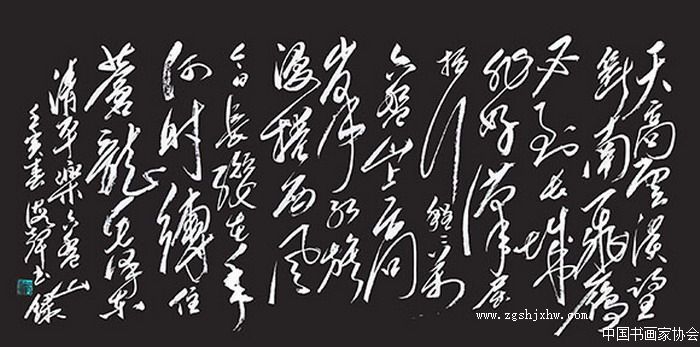 天高雲淡望
斷南飛鴈
不到長城
非好漢屈
指行程二萬
六盤山上高
峰紅旗
漫捲西風
今日長纓在手
何時縛住
蒼龍毛澤東
清平樂六盤山
壬寅春波书錄
www.zgshjxhw.com
中国书画家协会